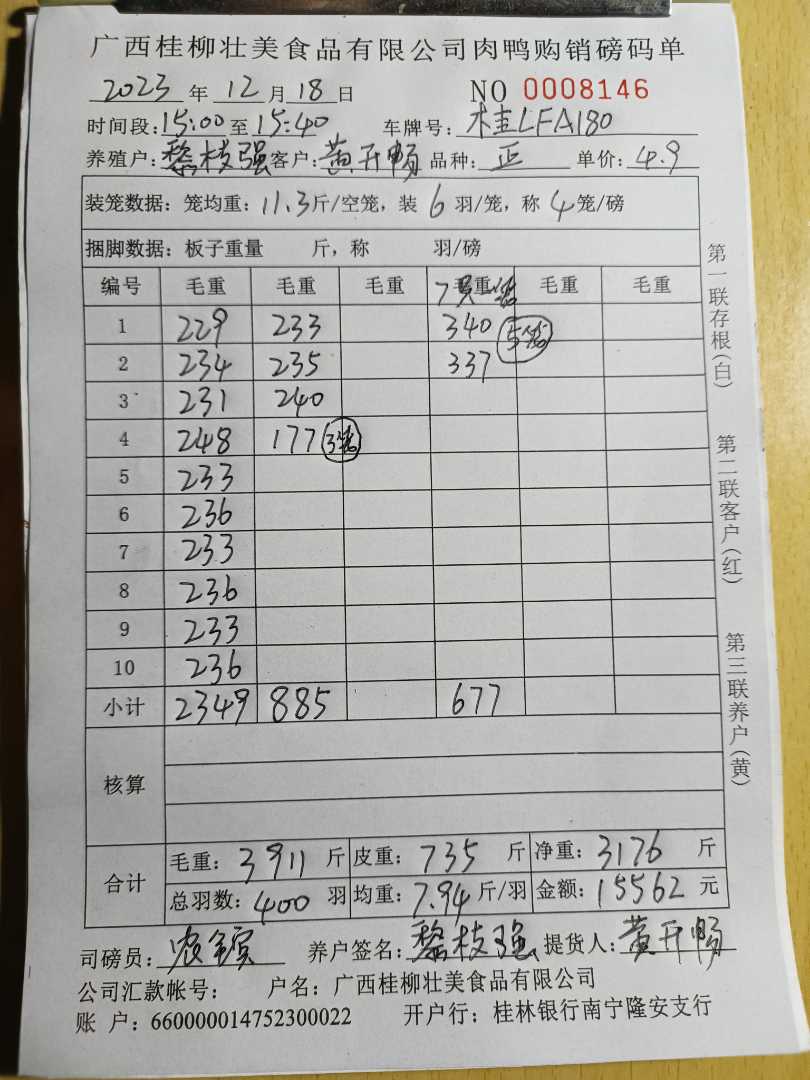 广西桂柳壮美食品有限公司肉鸭购销磅码单
2023 年 12 月 18 日 NO 0008146
时间段:15:00至15:40 车牌号: 桂LFA180
养殖户:黎枝强 客户:黄开畅 品种: 正 单价: 4.9
装笼数据: 笼均重: 11.3斤/空笼, 装 6 羽/笼, 称 4 笼/磅
捆脚数据: 板子重量 斤, 称 羽/磅
编号 毛重 毛重 毛重 毛重 毛重 毛重
7只一笼
1 229 233 340 5笼
2 234 235 337
3 231 240
4 248 177 3笼
5 233
6 236
7 233
8 236
9 233
10 236
小计 2349 885 677
核算
合计 毛重: 3911 斤 皮重: 735 斤 净重: 3176 斤
总羽数: 400 羽 均重: 7.94斤/羽 金额: 15562 元
司磅员: 养户签名: 黎枝强 提货人: 黄开畅
公司汇款帐号: 户名: 广西桂柳壮美食品有限公司
账 户: 660000014752300022 开户行: 桂林银行南宁隆安支行
第一联存根(白)
第二联客户(红)
第三联养户(黄)